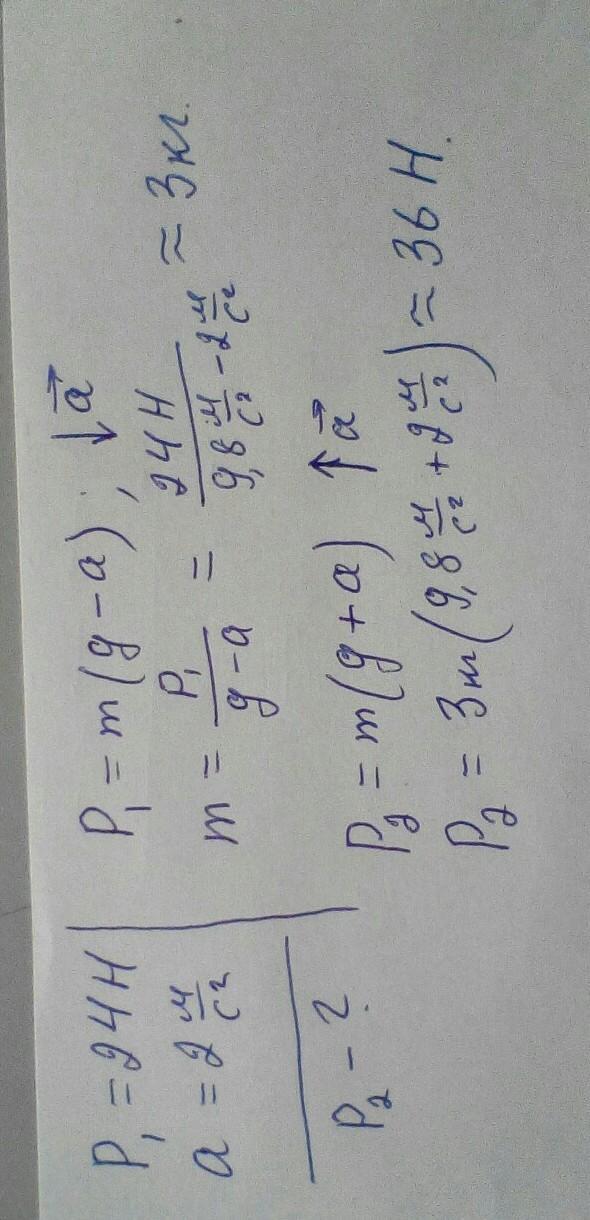 P₁ = 24 Н
a = 2 м/с²
P₂ – ?
P₁ = m(g – a), ↓a⃗
m = P₁/(g – a) = 24 Н/(9,8 м/с² – 2 м/с²) ≈ 3 кг.
P₂ = m(g + a) ↑a⃗
P₂ = 3 кг(9,8 м/с² + 2 м/с²) ≈ 36 Н.